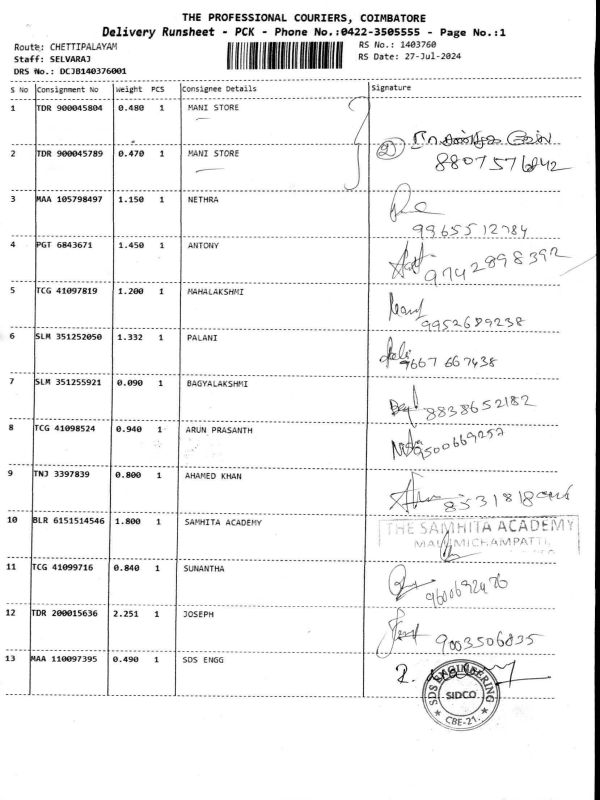 THE PROFESSIONAL COURIERS, COIMBATORE
Delivery Runsheet - PCK - Phone No.:0422-3505555 - Page No.:1
Route: CHETTIPALAYAM RS No.: 1403760
Staff: SELVARAJ RS Date: 27-Jul-2024
DRS No.: DCJB140376001
S No Consignment No Weight PCS Consignee Details Signature
1 TDR 900045804 0.480 1 MANI STORE
2 TDR 900045789 0.470 1 MANI STORE
2
8807576842
3 MAA 105798497 1.150 1 NETHRA
9965512784
4 PGT 6843671 1.450 1 ANTONY
9742898392
5 TCG 41097819 1.200 1 MAHALAKSHMI
9952689238
6 SLM 351252050 1.332 1 PALANI
9667 667438
7 SLM 351255921 0.090 1 BAGYALAKSHMI
8838652182
8 TCG 41098524 0.940 1 ARUN PRASANTH
9500669257
9 TNJ 3397839 0.800 1 AHAMED KHAN
10 BLR 6151514546 1.800 1 SAMHITA ACADEMY
THE SAMHITA ACADEMY
11 TCG 41099716 0.840 1 SUNANTHA
9600692476
12 TDR 200015636 2.251 1 JOSEPH
9003506835
13 MAA 110097395 0.490 1 SDS ENGG
SDS ENGINEERING
SIDCO
CBE-21.